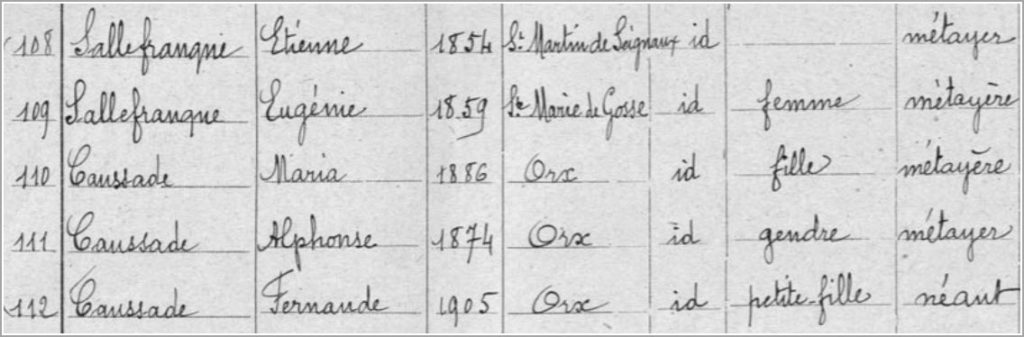 108 Sallefranque Etienne 1854 St Martin de Seignaux id métayer
109 Sallefranque Eugénie 1859 Ste Marie de Gosse id femme métayère
110 Caussade Maria 1886 Orx id fille métayère
111 Caussade Alphonse 1874 Orx id gendre métayer
112 Caussade Fernande 1905 Orx id petite-fille néant